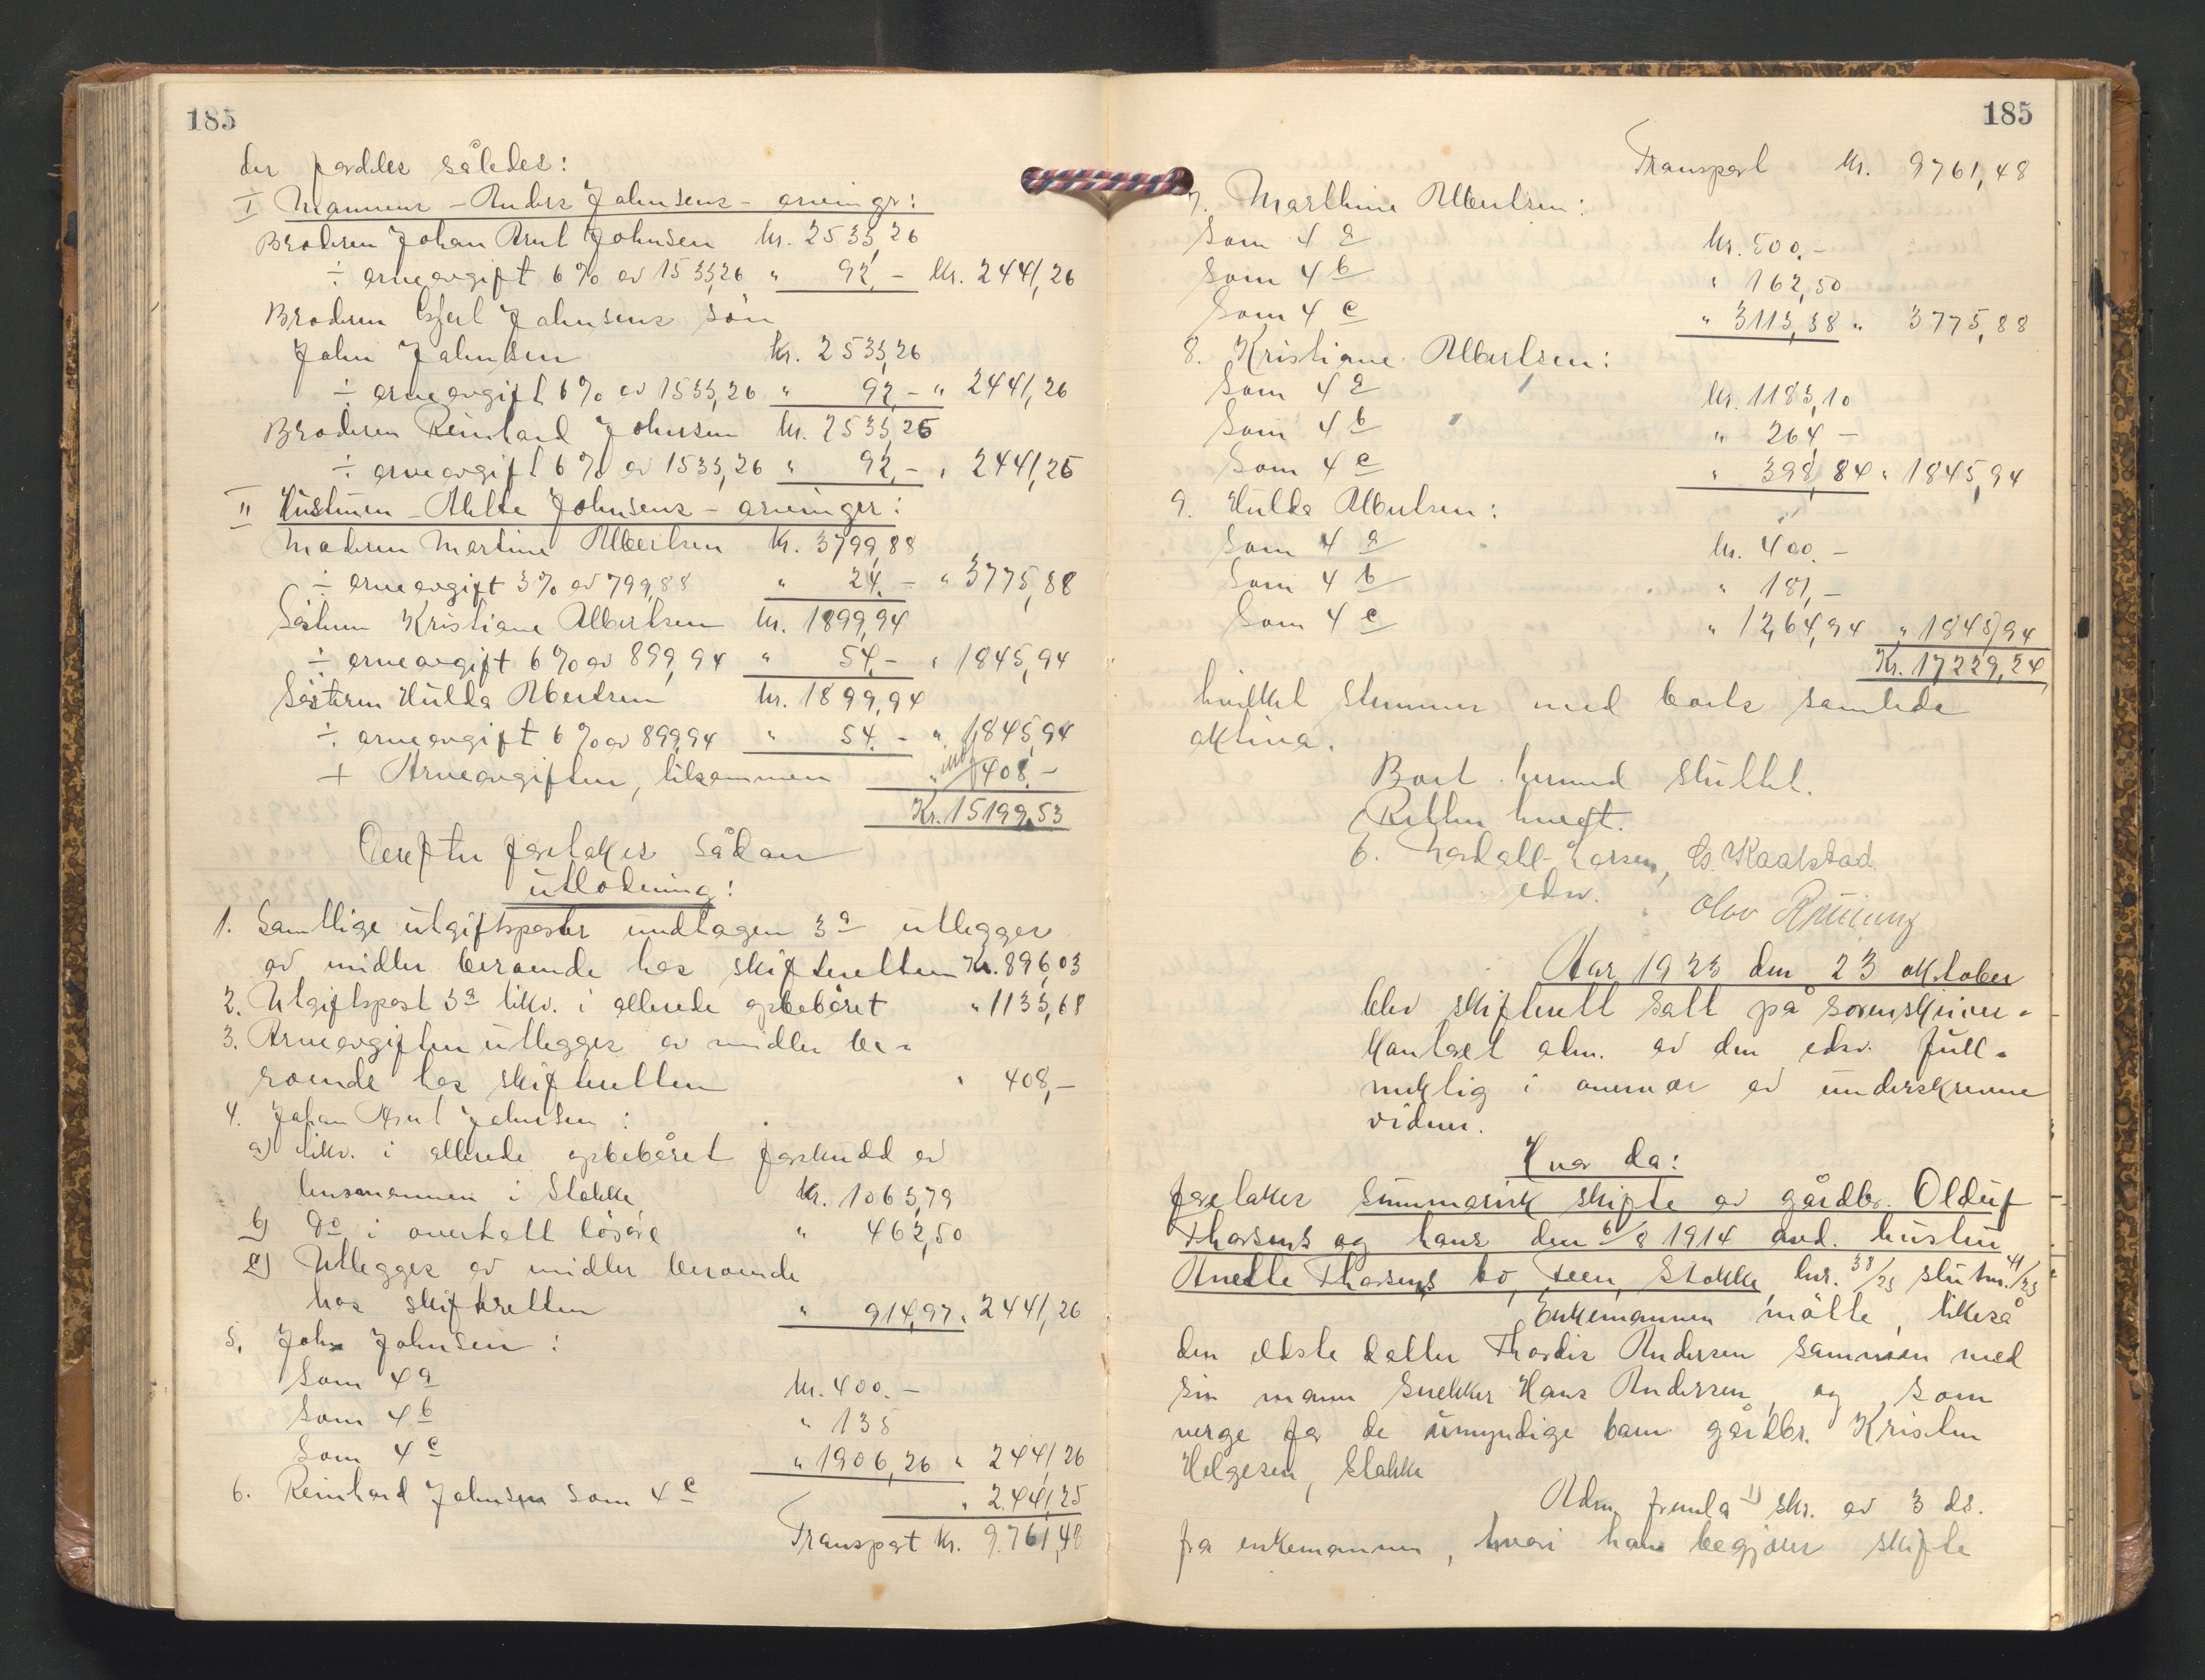 185
der fordeles således:
I Mannens - Anders Johnsens - arvinger:
Broderen Johan Arnt Johnsen kr. 2533,26
÷ arveavgift 6% av 1533,26 " 92,- kr. 2441,26
Broderen Johnsens søn
John Johnsen kr. 2533,26
÷ arveavgift 6% av 1533,26 " 92,- " 2441,26
Broderen Reinhard Johnsen kr. 2533,25
÷ arveavgift 6% av 1533,26 " 92,- " 2441,25
II Hustruen - Johnsens - arvinger:
Moderen Martine Albertsen kr. 3799,88
÷ arveavgift 3% av 799,88 " 24.- " 3775,88
Søstren Kristiane Albertsen kr. 1899,94
÷ arveavgift 6% av 899,94 " 54.- " 1845,94
Søstren Hulda Albertsen kr. 1899,94
÷ arveavgift 6% av 899,94 " 54.- " 1845,94
+ Arveavgiften, tilsammen " 408.-
Kr. 15199,53
Derefter foretokes sådan
utlodning:
1. Samtlige utgiftsposter undtagen 3a utlegges
av midler beroende hos skifteretten Kr. 896,03
2. Utgiftspost 3a likv. i allerede opbebåret " 1133,68
3. Arveavgiften utlegges av midler be-
roende hos skifteretten " 408,-
4. Johan Arnt Johnsen:
a) likv. i allerede opbebåret forskudd av
lensmannen i Stokke kr. 1063,79
b) do i overtatt løsøre " 462,50
c) Utlegges av midler beroende
hos skifteretten " 914,97 " 2441,26
5. John Johnsen:
Som 4a kr. 400.-
Som 4b " 135
Som 4c " 1906,26 " 2441,26
6. Reinhard Johnsen som 4c " 2.441,25
Transport kr. 9.761,48
185
Transport kr. 9761,48
7. Marthine Albertsen:
Som 4a kr. 500.-
Som 4b " 162,50
Som 4c " 3113,38 " 3775,88
8. Kristiane Albertsen:
Som 4a kr. 1183,10
Som 4b " 264 -
Som 4c " 398,84 " 1845,94
9. Hulda Albertsen:
Som 4a kr. 400.-
Som 4b " 181,-
Som 4c " 1264,94 " 1845,94
Kr. 17229,24
hvilket stemmer med boets samlede
aktiva.
Boet hermed sluttet.
Retten hævet.
Larsen, Kaalstad
edsv. Olav
Aar 1923 den 23 oktober
blev skifterett satt på sorenskriver-
kontoret adm. av den edsv. full-
mektig i overvær av underskrevne
vidner.
Hvor da:
foretokes summarisk skifte av gårdbr. Olduf
Thorsens og hans den 6/8 1914 avd. hustru
Anette Thorsens bo, Feen, Stokke lnr. 38/23 slutnr. 41/23
Enkemannen møtte, likeså
den eldste datter Thordis Andersen sammen med
sin mann snekker Hans Andersen, og som
verge for de umyndige barn gårdbr. Kristen
Helgesen, Stokke
Adm. fremla 1) skr. av 3 ds.
fra enkemannen, hvori han begjærer skifte